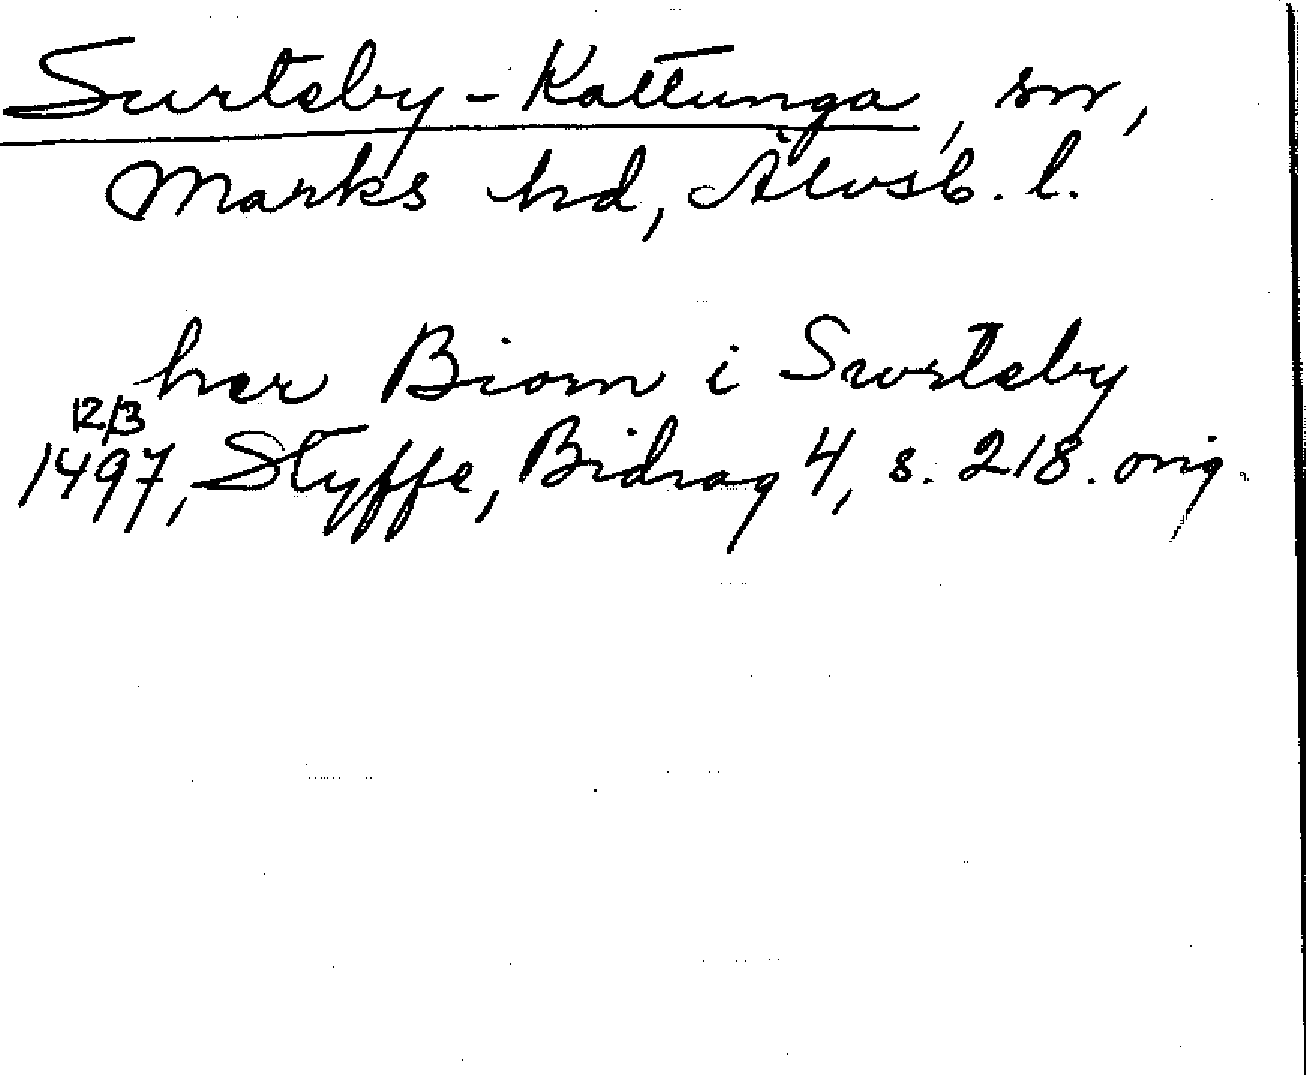 Surteby-Kattunga, sn,
Marks hd, Älvsb. l.
her Biorn i Swrteby
12/3
1497, Styffe, Bidrag 4, s. 218. orig.